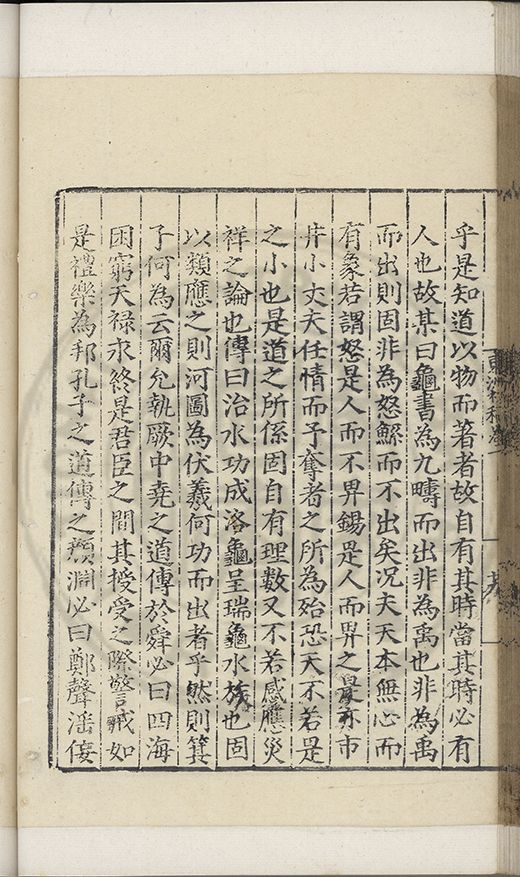 乎是知道以物而著者故自有其時當其時必有
人也故某曰龜書為九疇而出非為禹也非為禹
而出則固非為怒鯀而不出矣况夫天本無心而
有象若謂怒是人而不畀錫是人而畀之是亦市
井小丈夫任情而予奪者之所為殆恐天不若是
之小也是道之所係固自有理數又不若感應災
祥之論也傳曰治水功成洛龜呈瑞龜水族也固
以類應之則河圖為伏羲何功而出者乎然則箕
子何為云爾允執厥中堯之道傳於舜必曰四海
困窮天禄永終是君臣之間其授受之際警戒如
是禮樂為邦孔子之道傳之顔淵必曰鄭聲滛佞